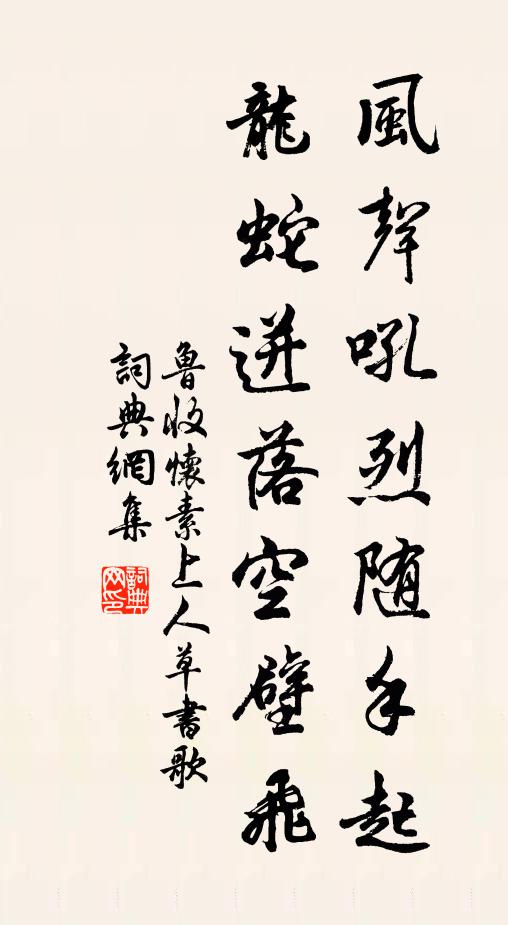 風聲吼烈随手起
龍蛇迸落空壁飛
魯收懷素上人草書歌
詞典網集
詞典网印